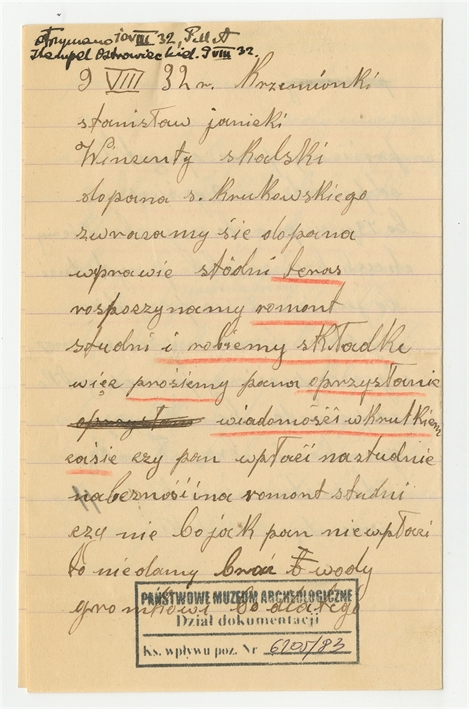 otrzymano 10 VIII 32,
Stempel Ostrowiec kiel. 9 VIII 32.
9 VIII 32 r. Krzemionki
stanisław janicki
Winsenty skalski
dopana s. krukowskiego
zwrasamy śie dopana
wprawie stódni teras
rospoczynamy romont
studni i robiemy skłatke
więz prośiemy pana oprzysłanie
oprzysłan wiadomośći w krutkiem
caśie czy pan wpłaći nastudnie
nabeznośći na romont studni
czy nie bo jak pan niewpłaći
to niedamy brać z wody
gromkowi bo dlatego
PAŃSTWOWE MUZEUM ARCHEOLOGICZNE
Dział dokumentacji
Ks. wpływu poz. Nr 6205/83